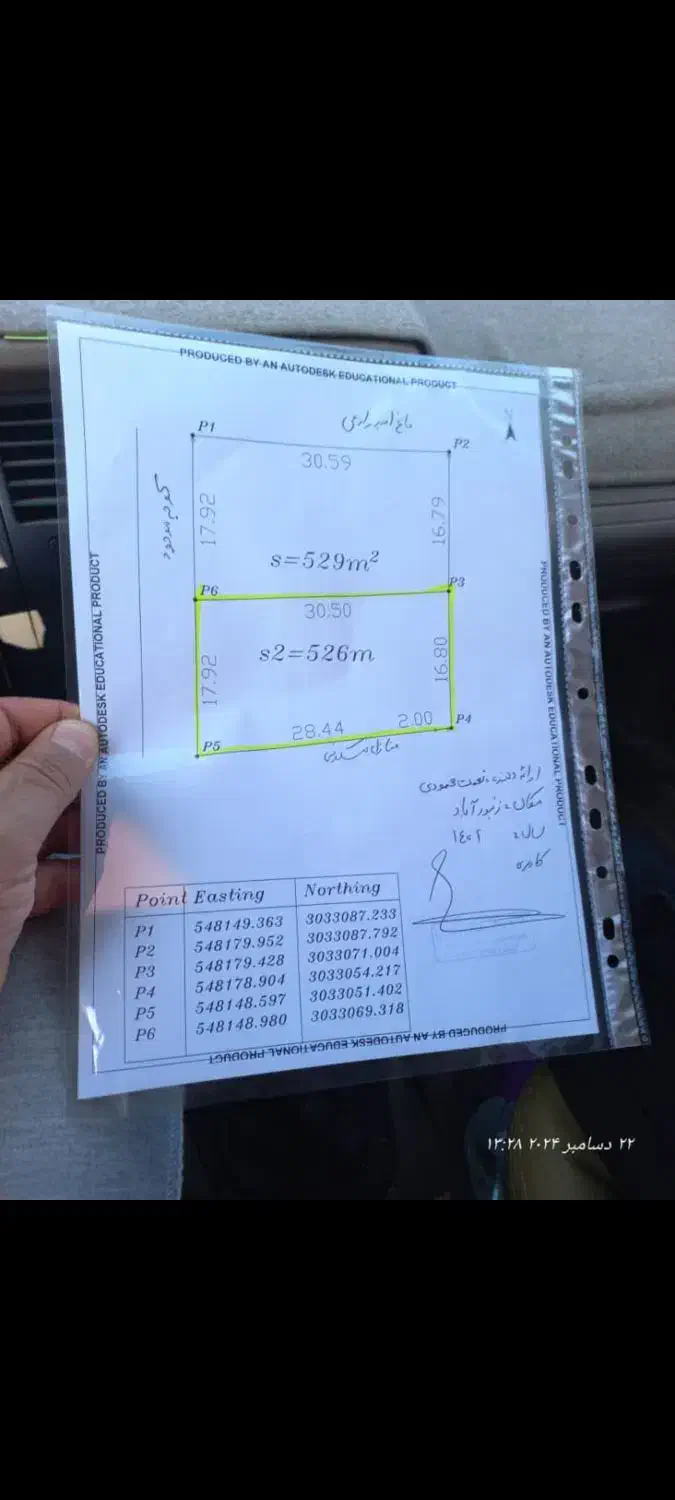 PRODUCED BY AN AUTODESK EDUCATIONAL PRODUCT
P1
باغ
P2
30.59
کوچه موجود
17.92
16.79
s=529m²
P6
P3
30.50
s2=526m
17.92
16.80
28.44
2.00
P4
P5
منازل مسکونی
ارائه دهنده: نعمت محمودی
مکان: زنبورآباد
سال: ۱۴۰۲
PRODUCED BY AN AUTODESK EDUCATIONAL PRODUCT
PRODUCED BY AN AUTODESK EDUCATIONAL PRODUCT
Point Easting Northing
P1 548149.363 3033087.233
P2 548179.952 3033087.792
P3 548179.428 3033071.004
P4 548178.904 3033054.217
P5 548148.597 3033051.402
P6 548148.980 3033069.318
PRODUCED BY AN AUTODESK EDUCATIONAL PRODUCT
۲۲ دسامبر ۲۰۲۴ ۱۳:۲۸